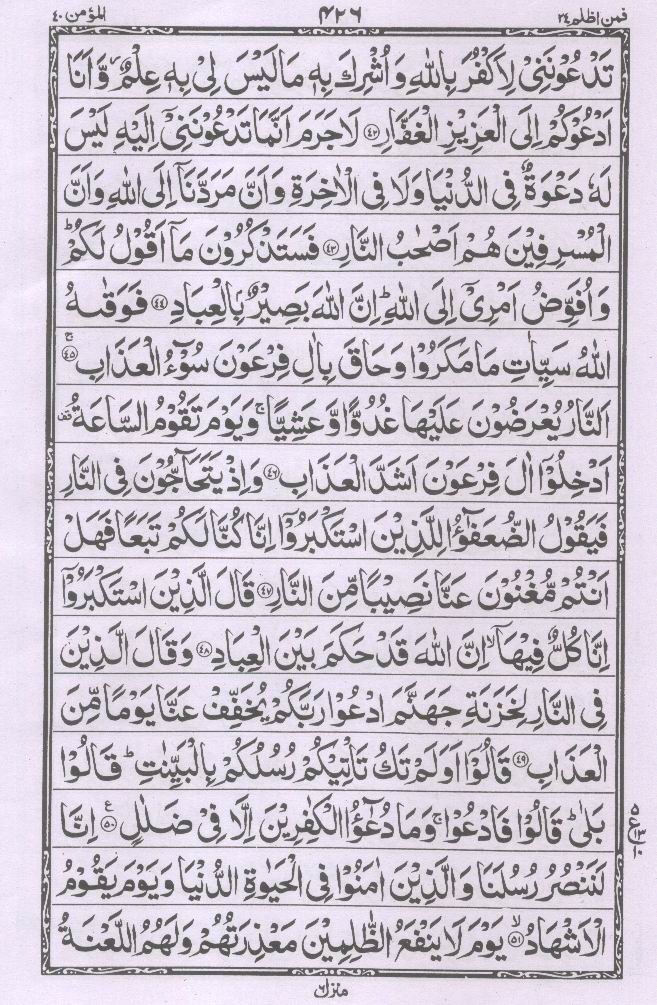 المؤمن ٤٠ ٤٢٦ فمن اظلم ٢٤
تَدْعُوْنَنِیْ لِاَكْفُرَ بِاللّٰهِ وَ اُشْرِكَ بِهٖ مَا لَیْسَ لِیْ بِهٖ عِلْمٌ ؗ وَّ اَنَا
اَدْعُوْكُمْ اِلَی الْعَزِیْزِ الْغَفَّارِ ﴿٤٢﴾ لَا جَرَمَ اَنَّمَا تَدْعُوْنَنِیْۤ اِلَیْهِ لَیْسَ
لَهٗ دَعْوَةٌ فِی الدُّنْیَا وَ لَا فِی الْاٰخِرَةِ وَ اَنَّ مَرَدَّنَاۤ اِلَی اللّٰهِ وَ اَنَّ
الْمُسْرِفِیْنَ هُمْ اَصْحٰبُ النَّارِ ﴿٤٣﴾ فَسَتَذْكُرُوْنَ مَاۤ اَقُوْلُ لَكُمْ ؕ
وَ اُفَوِّضُ اَمْرِیْۤ اِلَی اللّٰهِ ؕ اِنَّ اللّٰهَ بَصِیْرٌۢ بِالْعِبَادِ ﴿٤٤﴾ فَوَقٰىهُ
اللّٰهُ سَیِّاٰتِ مَا مَكَرُوْا وَ حَاقَ بِاٰلِ فِرْعَوْنَ سُوْٓءُ الْعَذَابِ ۚ﴿٤٥﴾
اَلنَّارُ یُعْرَضُوْنَ عَلَیْهَا غُدُوًّا وَّ عَشِیًّا ۚ وَ یَوْمَ تَقُوْمُ السَّاعَةُ قف
اَدْخِلُوْۤا اٰلَ فِرْعَوْنَ اَشَدَّ الْعَذَابِ ﴿٤٦﴾ وَ اِذْ یَتَحَآجُّوْنَ فِی النَّارِ
فَیَقُوْلُ الضُّعَفٰٓؤُا لِلَّذِیْنَ اسْتَكْبَرُوْۤا اِنَّا كُنَّا لَكُمْ تَبَعًا فَهَلْ
اَنْتُمْ مُّغْنُوْنَ عَنَّا نَصِیْبًا مِّنَ النَّارِ ﴿٤٧﴾ قَالَ الَّذِیْنَ اسْتَكْبَرُوْۤا
اِنَّا كُلٌّ فِیْهَاۤ ۙ اِنَّ اللّٰهَ قَدْ حَكَمَ بَیْنَ الْعِبَادِ ﴿٤٨﴾ وَ قَالَ الَّذِیْنَ
فِی النَّارِ لِخَزَنَةِ جَهَنَّمَ ادْعُوْا رَبَّكُمْ یُخَفِّفْ عَنَّا یَوْمًا مِّنَ
الْعَذَابِ ﴿٤٩﴾ قَالُوْۤا اَوَ لَمْ تَكُ تَاْتِیْكُمْ رُسُلُكُمْ بِالْبَیِّنٰتِ ؕ قَالُوْا
بَلٰی ؕ قَالُوْا فَادْعُوْا ۚ وَ مَا دُعٰٓؤُا الْكٰفِرِیْنَ اِلَّا فِیْ ضَلٰلٍ ﴿٥٠﴾ ع اِنَّا
لَنَنْصُرُ رُسُلَنَا وَ الَّذِیْنَ اٰمَنُوْا فِی الْحَیٰوةِ الدُّنْیَا وَ یَوْمَ یَقُوْمُ
الْاَشْهَادُ ۙ﴿٥١﴾ یَوْمَ لَا یَنْفَعُ الظّٰلِمِیْنَ مَعْذِرَتُهُمْ وَ لَهُمُ اللَّعْنَةُ
منزل ٦